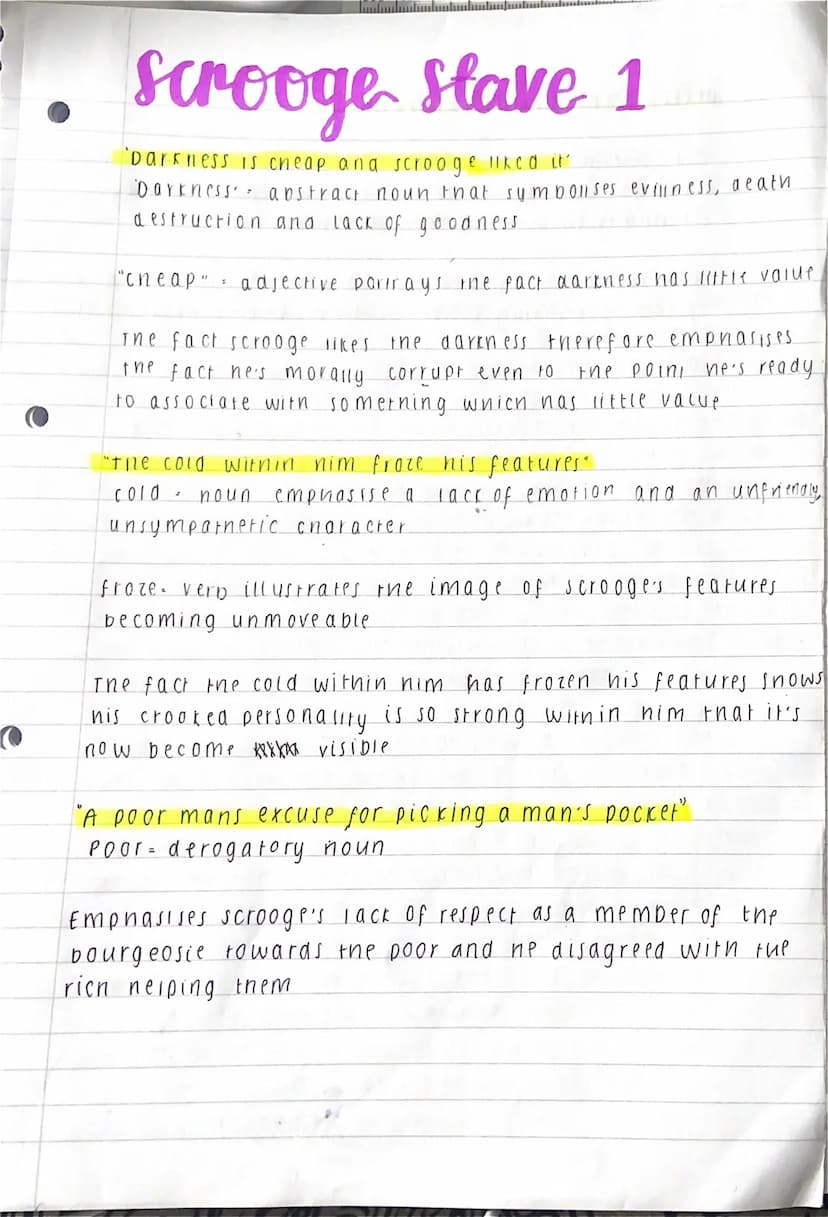 Scrooge Stave 1
'Darkness is cheap and scrooge liked it'
'Darkness' = abstract noun that symbolises evilness, death
destruction and lack of goodness
"cheap" = adjective portrays the fact darkness has little value
The fact scrooge likes the darkness therefore emphasises
the fact he's morally corrupt even to the point he's ready
to associate with something which has little value
"The cold within him froze his features"
cold = noun emphasise a lack of emotion and an unfriendly,
unsympathetic character
froze = verb illustrates the image of scrooge's features
becoming unmoveable
The fact the cold within him has frozen his features shows
his crooked personality is so strong within him that it's
now become visible
"A poor mans excuse for picking a man's pocket"
Poor = derogatory noun
Emphasises scrooge's lack of respect as a member of the
bourgeosie towards the poor and he disagreed with the
rich helping them